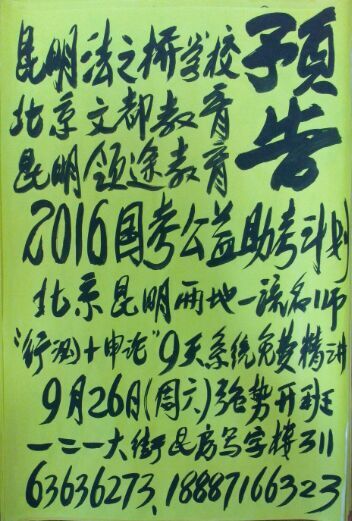 預告
昆明法之桥学校
北京文都教育
昆明领途教育
2016国考公益助考计划
北京昆明两地一流名师
“行测+申论”9天系统免费精讲
9月26日(周六)强势开班
一二一大街昆房写字楼311
63636273、18887166323